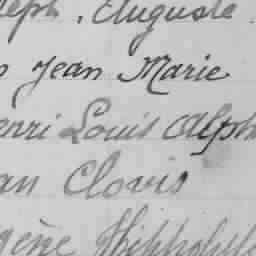 seph, Auguste
Jean Marie
enri Louis Alph
an Clovis
gène Hippolyte